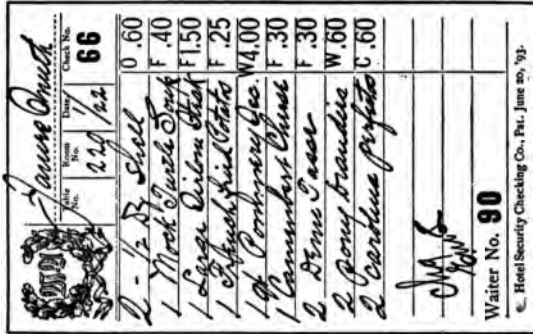 Smith
Table No. Room No. 220 Date 1/22 Check No. 66
2 - 1/2 Dz Shell O .60
1 Mock Turtle Soup F .40
1 Large Sirloin Steak F 1.50
1 French Fried Potatoes F .25
1 qt Pommery Sec. W 4.00
1 Camembert Cheese F .30
2 Demi Tasse F .30
2 Pony brandies W .60
2 perfectos C .60
Waiter No. 90
Hotel Security Checking Co., Pat. June 20, '93.